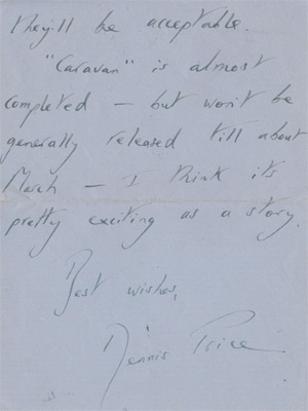 they'll be acceptable.
"Caravan" is almost
completed – but won't be
generally released till about
March – I think its
pretty exciting as a story.
Best wishes,
Dennis Price.